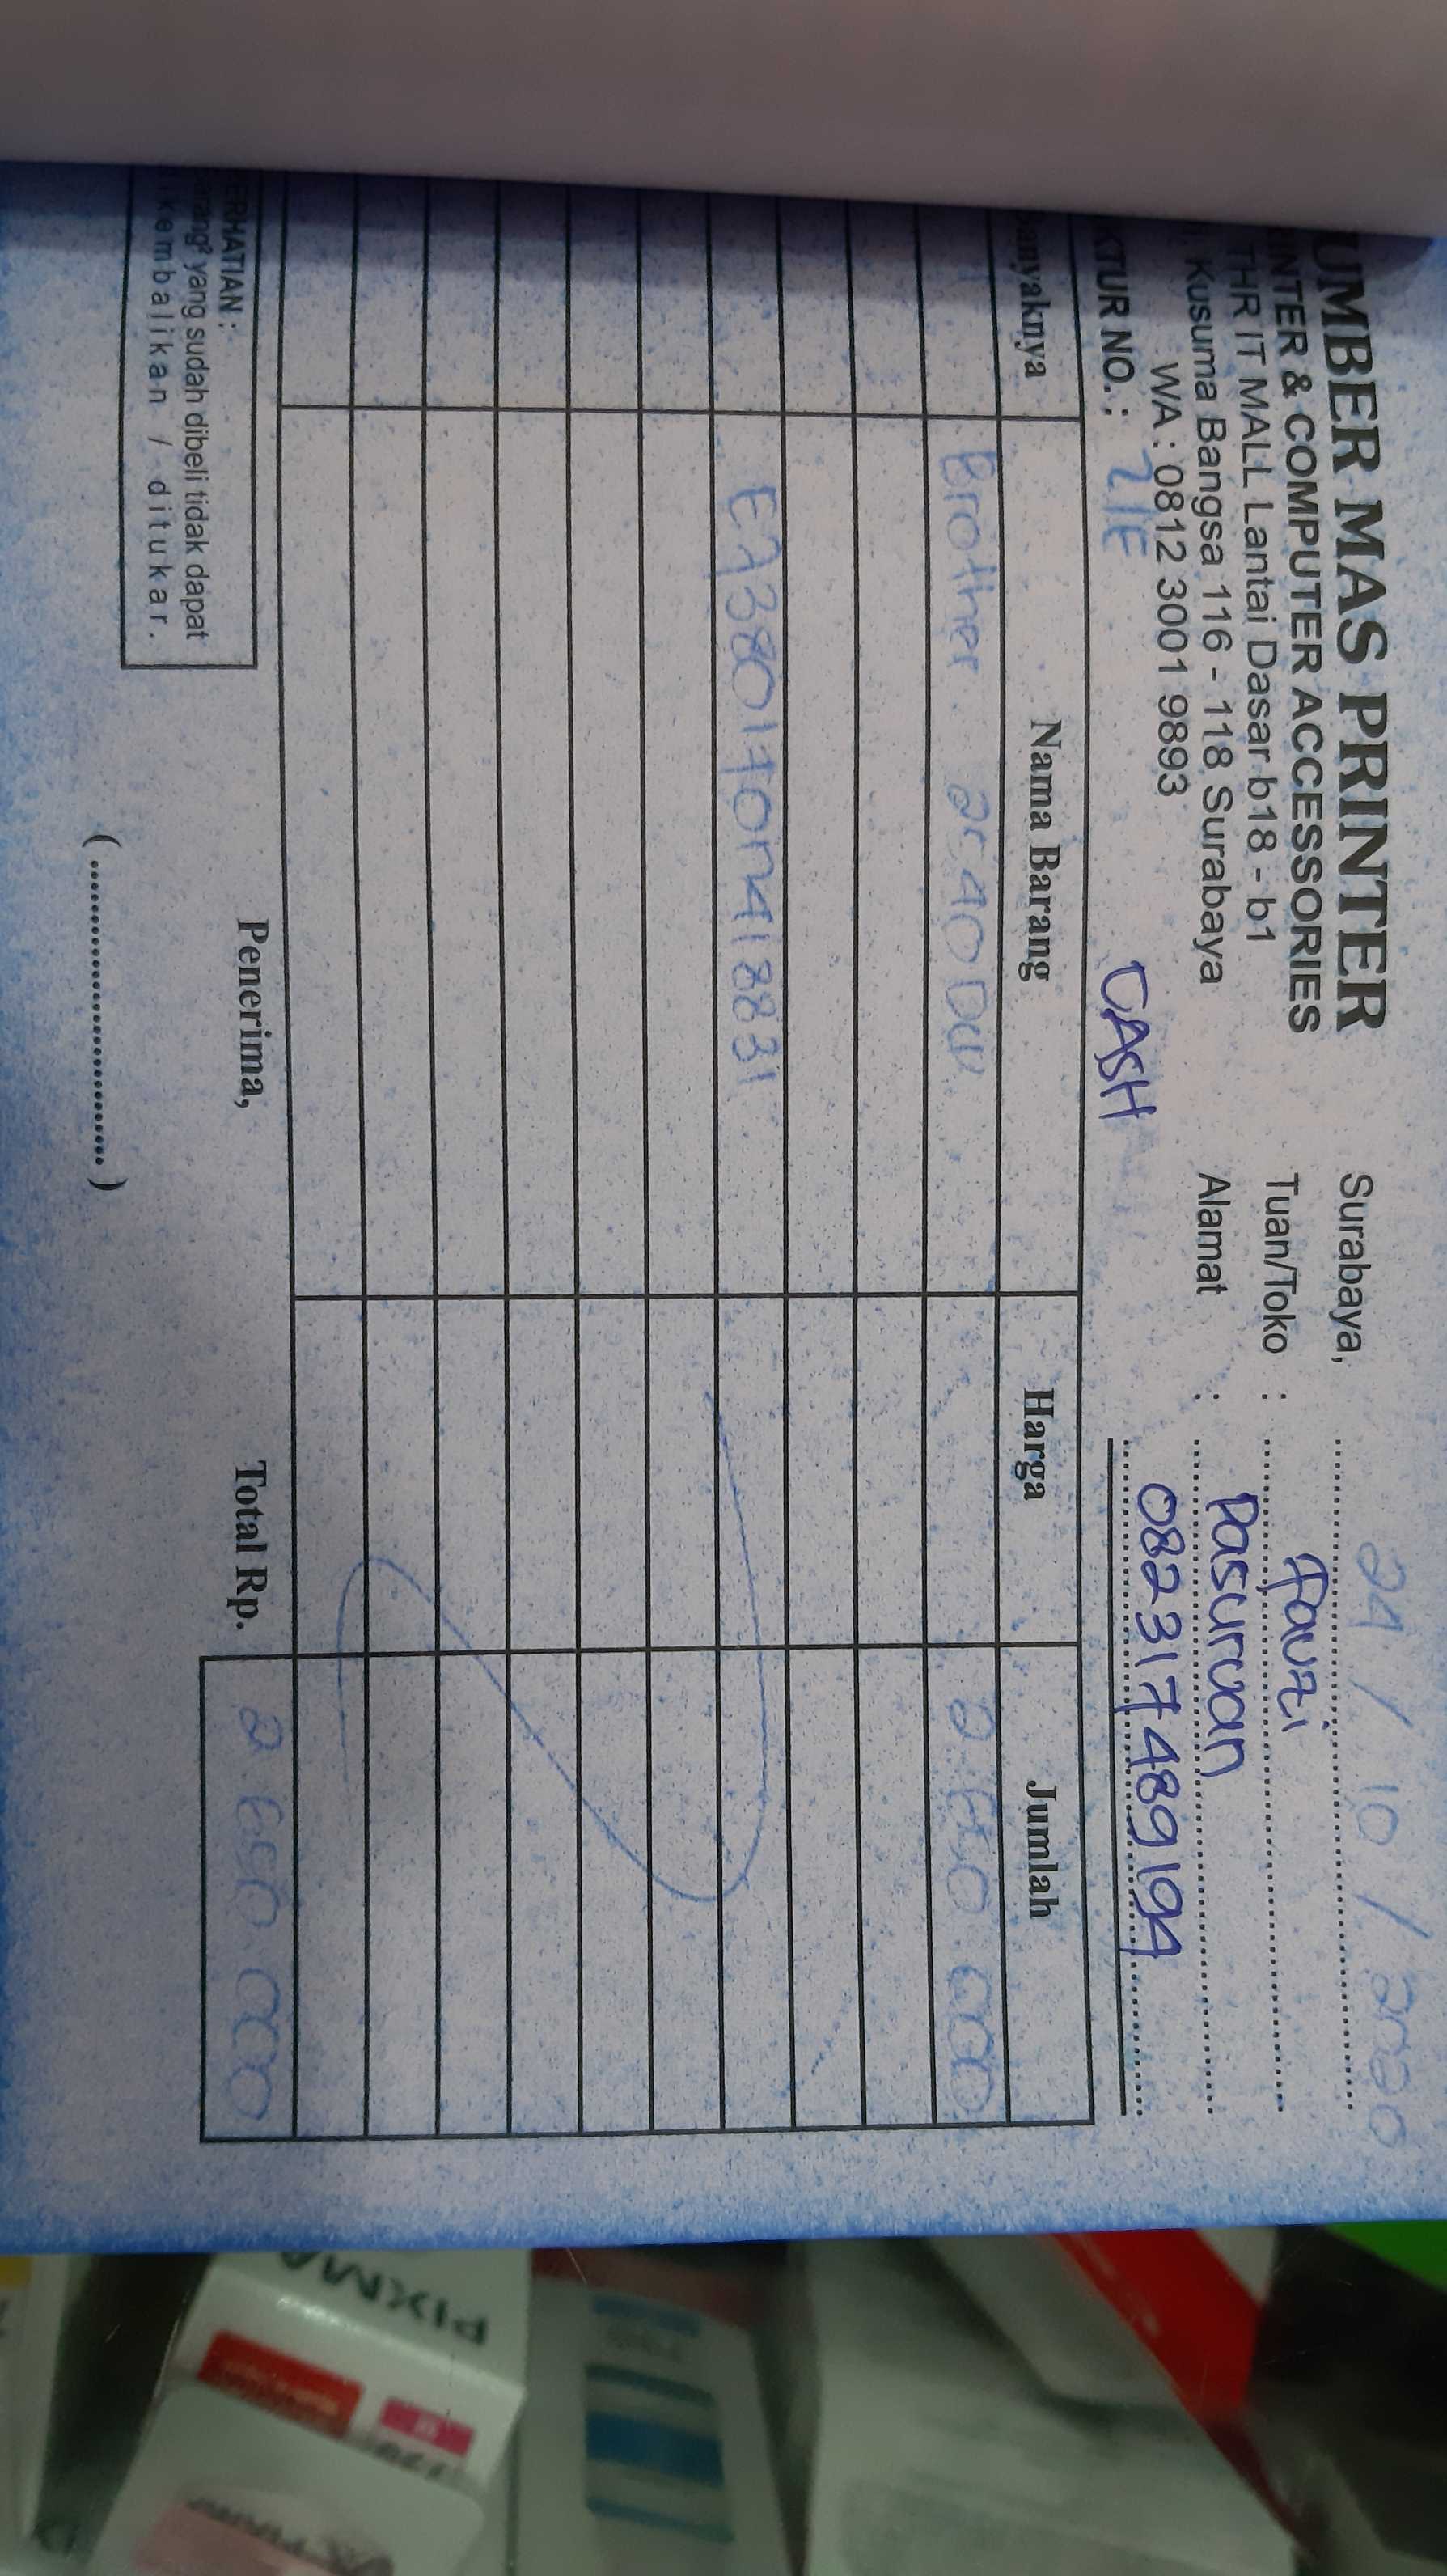 UMBER MAS PRINTER
INTER & COMPUTER ACCESSORIES
THR IT MALL Lantai Dasar b18 - b1
Kusuma Bangsa 116 - 118 Surabaya
WA : 0812 3001 9893
Surabaya, 24 / 10 / 2020
Tuan/Toko : Fauzi
Alamat : Pasuruan
082317489194
KTUR NO. : CASH
Banyaknya Nama Barang Harga Jumlah
1 Brother 2.650.000
2.650.000
Total Rp.
Penerima,
(........................)
ERHATIAN :
arang² yang sudah dibeli tidak dapat
ikembalikan / ditukar.
PIXMA